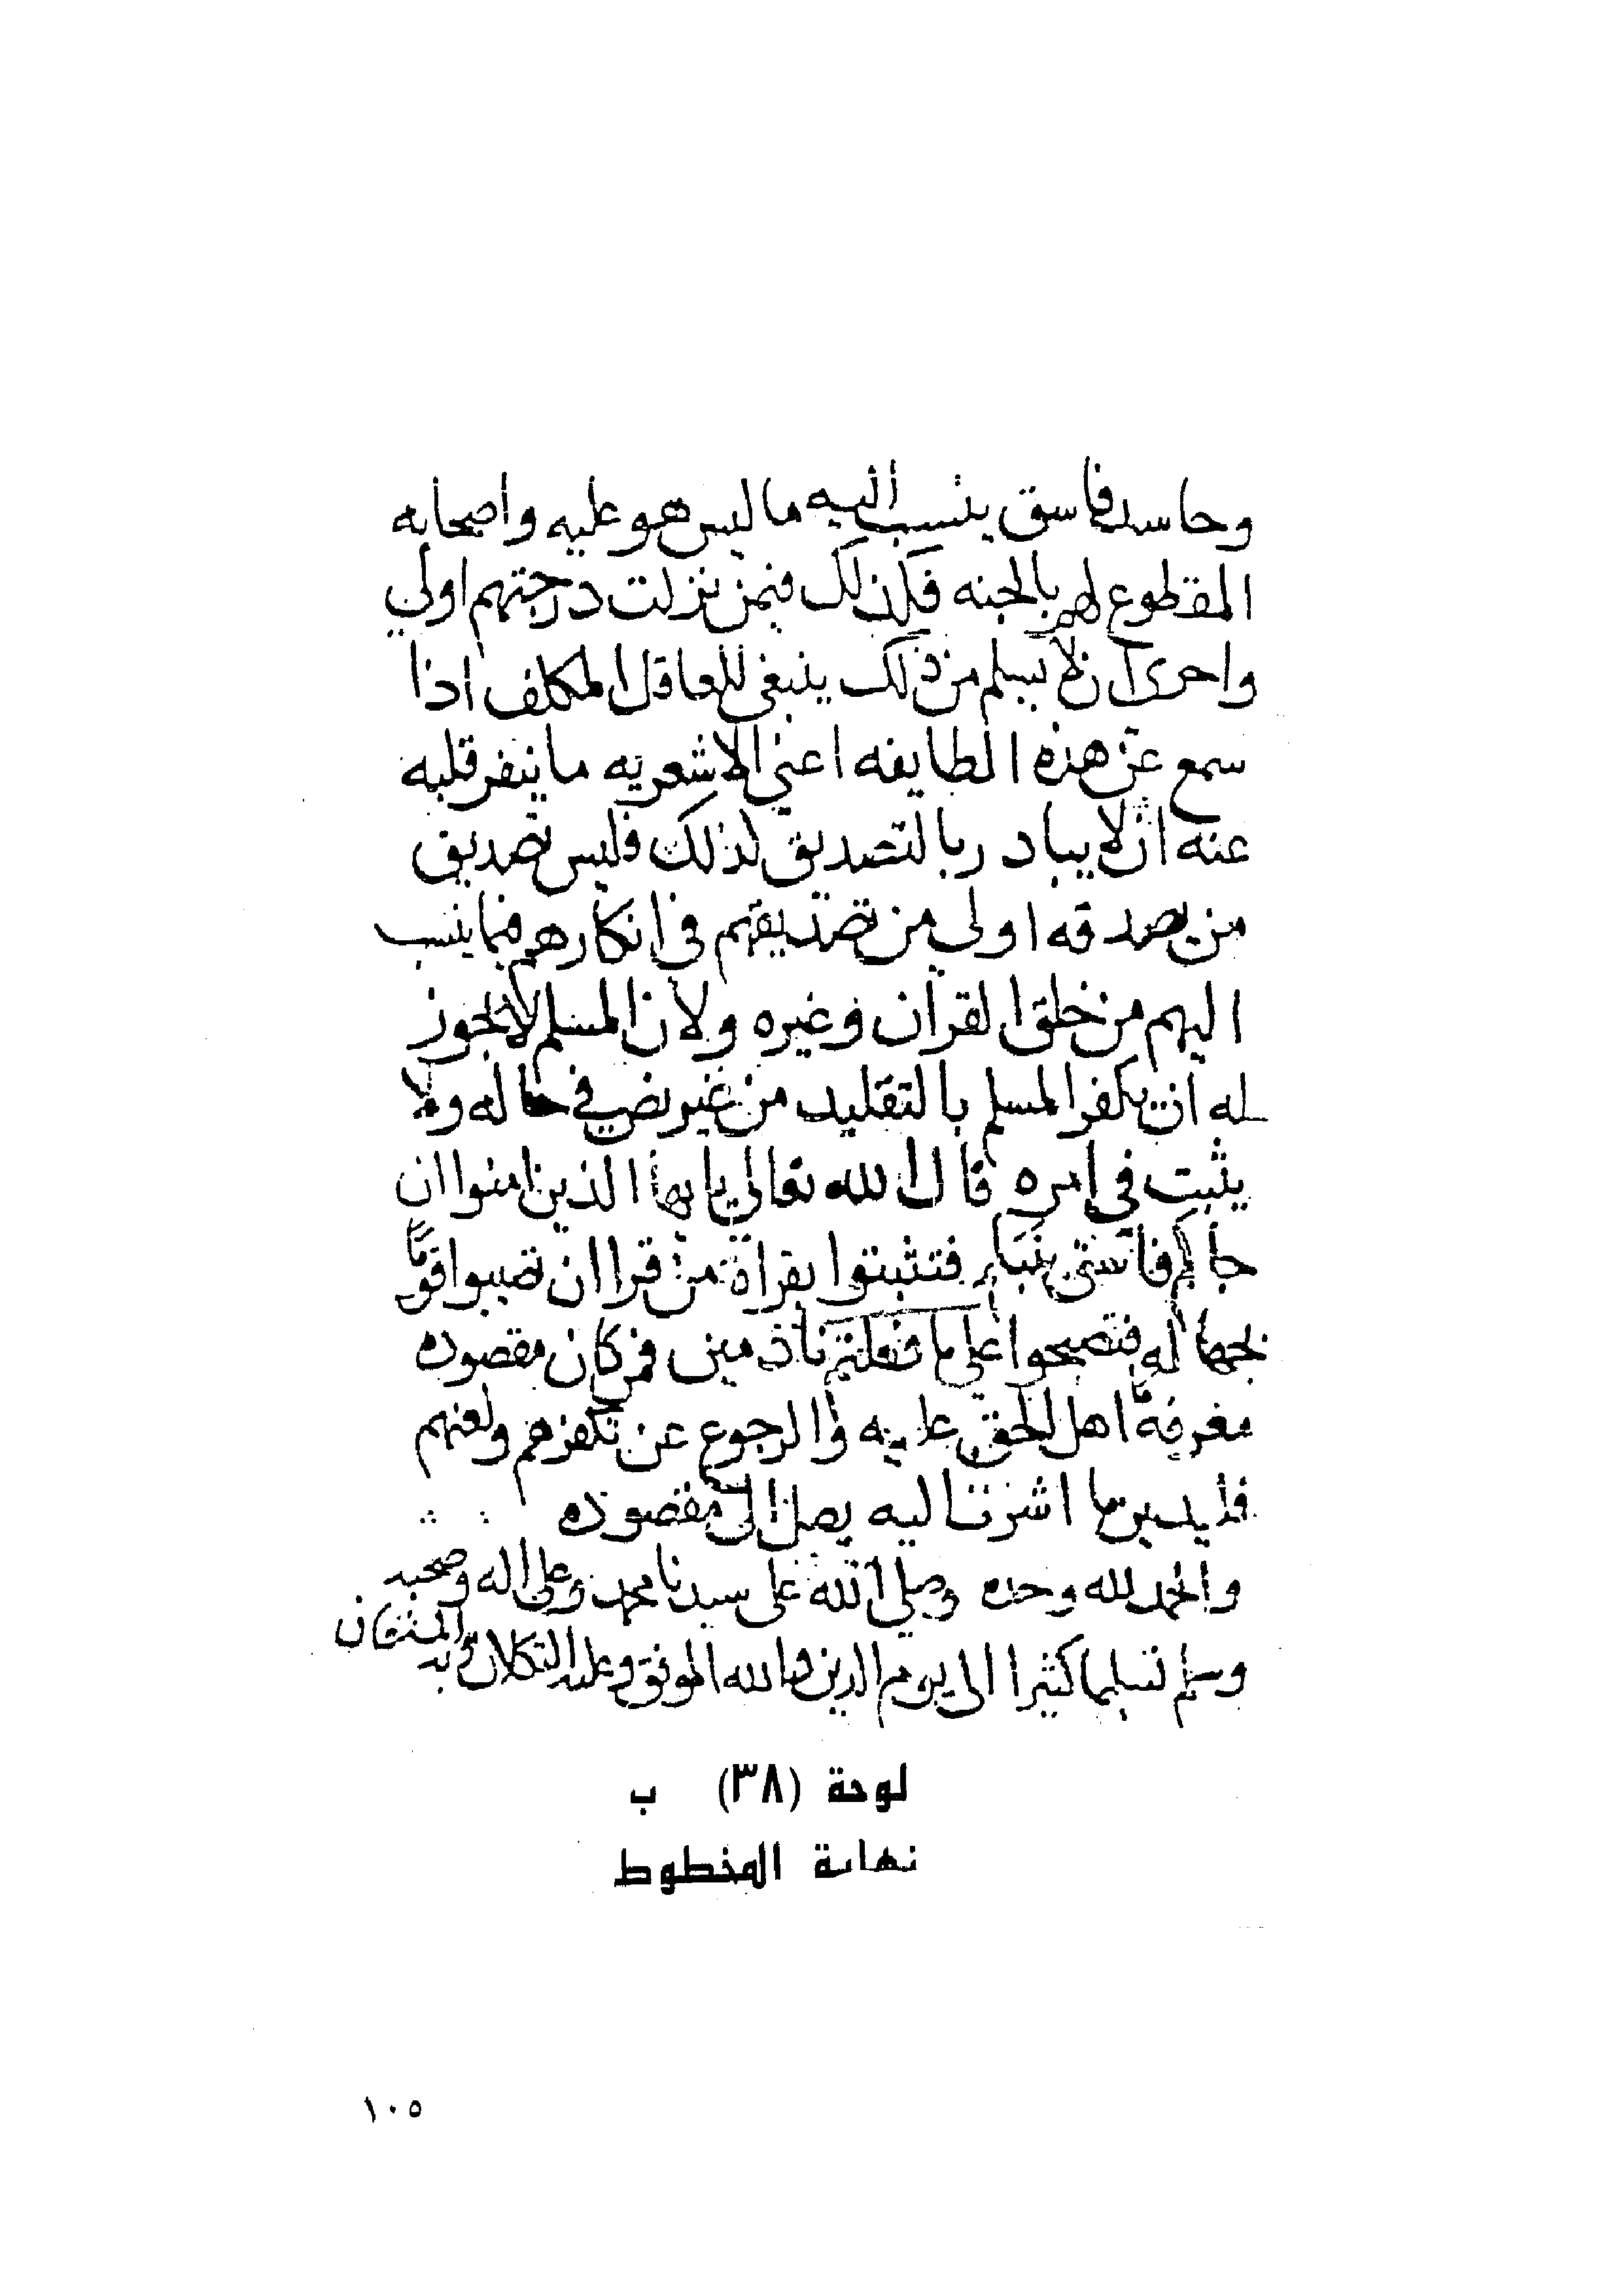 وحاسد فاسق ينسب اليه ما ليس هو عليه واصحابه
المقطوع لهم بالجنه فكذلك فيمن نزلت درجتهم اولي
واحري ان لا يسلم من ذلك ينبغي للعاقل المكلف اذا
سمع عن هذه الطايفه اعني الاشعريه ما ينفر قلبه
عنه ان لا يبادر بالتصديق لذلك فليس تصديق
من يصدقه اولي من تصديقهم في انكارهم فيما ينسب
اليهم من خلق القران وغيره ولان المسلم لا يجوز
له ان يكفر المسلم بالتقليد من غير نص في حاله ولا
يثبت في امره قال الله تعالي يا يها الذين امنوا ان
جاكم فاسق بنبا فتثبتوا بقراة من قرا ان تصيبوا قومًا
بجهاله فتصبحوا علي ما فعلتم نادمين فمن كان مقصوده
معرفة اهل الحق عليه والرجوع عن تكفرهم ولعنهم
ما اشرنا اليه يصل الي مقصوده
والحمد لله وحده وصلي الله علي سيدنا محمد وعلي اله وصحبه
وسلم تسليما كثيرا الي يوم الدين والله الموفق وعليه التكلان وبه المستعان
لوحة (٣٨) ب
نهاية المخطوط
١٠٥